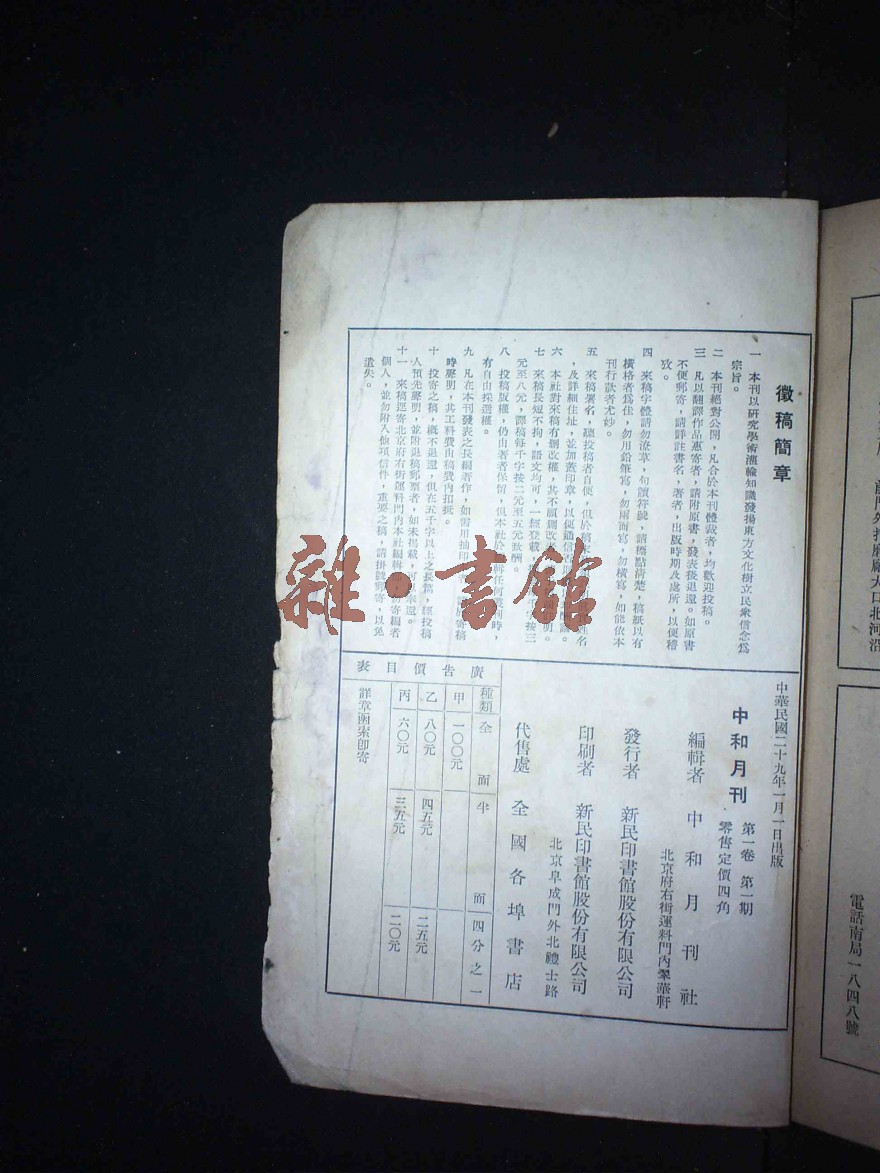 徵稿簡章
一 本刊以研究學術灌輸知識發揚東方文化樹立民衆信念為
宗旨。
二 本刊絕對公開，凡合於本刊體裁者，均歡迎投稿。
三 凡以翻譯作品惠寄者，請附原書，發表後退還。如原書
不便郵寄，請詳註書名，著者，出版時期及處所，以便稽
攷。
四 來稿字體請勿潦草，句讀符號，請標點清楚，稿紙以有
橫格者為佳，勿用鉛筆寫，勿兩面寫，勿橫寫，如能依本
刊行款者尤妙。
五 來稿署名，聽投稿者自便，但於稿
姓名
，及詳細住址，並加蓋印章，以便通信
六 本社對來稿有刪改權，其不願刪改
明。
七 來稿長短不拘，語文均可，一經登載，
按三
元至八元，譯稿每千字按二元至五元致酬。
八 投稿版權，仍由著者保留，但本社於
輯任何
時，
有自由採選權。
九 凡在本刊發表之長編著作，如需用抽印
寄稿
時聲明，其工料費由稿費內扣抵。
十 投寄之稿，概不退還，但在五千字以上之長篇，經投稿
人預先聲明，並附退稿郵票者，如未揭載，可
還。
十一 來稿逕寄北京府右街運料門內本社編輯部，勿寄編者
個人，並勿附入他項信件，重要之稿，請掛號郵寄，以免
遺失。
中華民國二十九年一月一日出版
中和月刊 第一卷 第一期
零售定價四角
編輯者 中和月刊社
北京府右街運料門內翠華軒
發行者 新民印書館股份有限公司
印刷者 新民印書館股份有限公司
北京阜成門外北禮士路
代售處 全國各埠書店
廣告價目表
種類 全面 半面 四分之一
甲 一〇〇元
乙 八〇元 四五元 二五元
丙 六〇元 三五元 二〇元
詳章函索即寄
前門外打磨廠大口北河沿
電話南局一八四八號
雜·書館